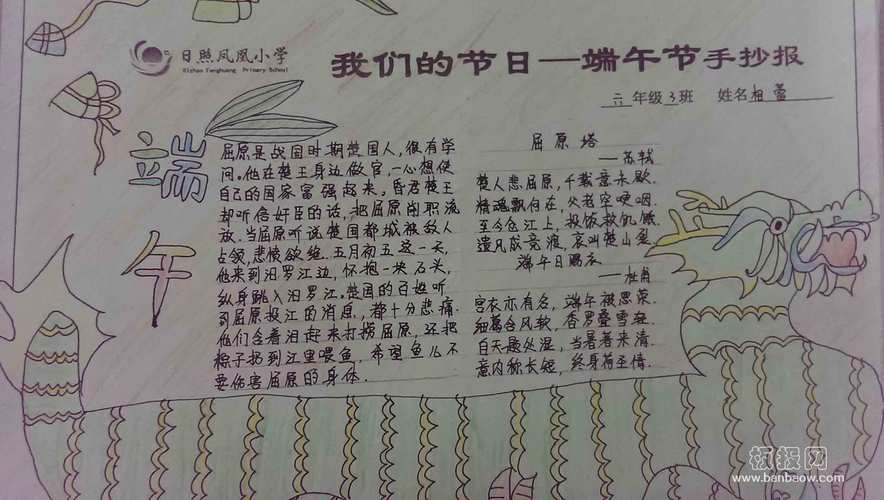 日照凤凰小学
Rizhao Fenghuang Primary School
我们的节日—端午节手抄报
六年级3班 姓名相蕾
端午
屈原是战国时期楚国人,很有学
问。他在楚王身边做官,一心想使
自己的国家富强起来。昏君楚王
却听信奸臣的话,把屈原削职流
放。当屈原听说楚国都城被敌人
占领,悲愤欲绝。五月初五这一天,
他来到汨罗江边,怀抱一块石头,
纵身跳入汨罗江。楚国的百姓听
到屈原投江的消息,都十分悲痛.
他们含着泪赶来打捞屈原,还把
粽子扔到江里喂鱼,希望鱼儿不
要伤害屈原的身体.
屈原塔
—苏轼
楚人悲屈原,千载意未歇.
精魂飘何在,父老空哽咽.
至今仓江上,投饭救饥渴
遗风成竞渡,哀叫楚山裂.
端午日赐衣
—杜甫
宫衣亦有名,端午被恩荣.
细葛含风软,香罗叠雪轻.
自天题处湿,当暑著来清.
意内称长短,终身荷圣情.
板报网
www.banbaow.com